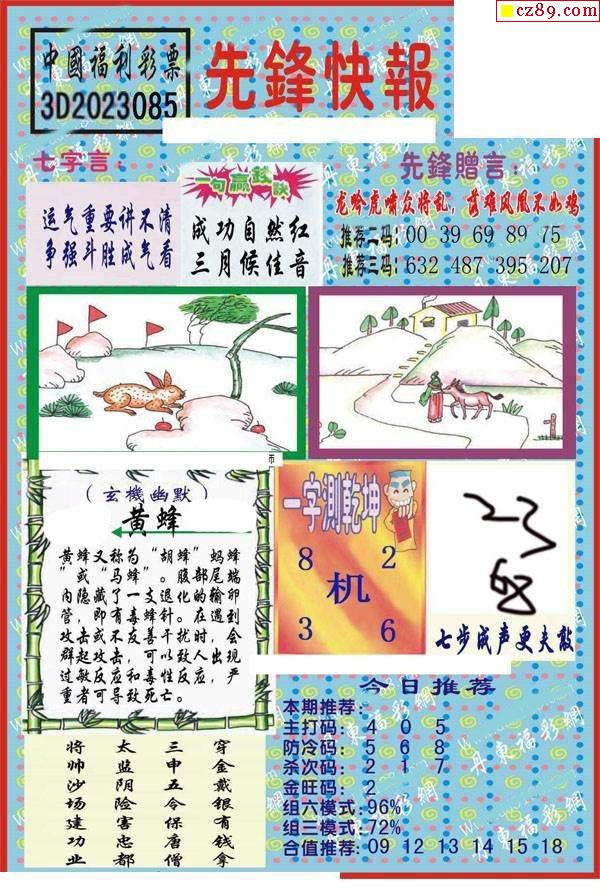 cz89.com
中國福利彩票
3D2023085
先鋒快報
七字言：
运气重要讲不清
争强斗胜成气看
一句赢錢訣
成功自然红
三月候佳音
先鋒贈言：
龙吟虎啸众将乱，落难凤凰不如鸡
推荐二码：00 39 69 89 75
推荐三码：632 487 395 207
（玄機幽默）
黄蜂
黄蜂又称为“胡蜂”蚂蜂
”或“马蜂”。腹部尾端
内隐藏了一支退化的输卵
管，即有毒蜂针。在遇到
攻击或不友善干扰时，会
群起攻击，可以致人出现
过敏反应和毒性反应，严
重者可导致死亡。
一字測乾坤
8 2
机
3 6
七步成声更夫敲
将 太 三 穿
帅 监 申 金
沙 阴 五 戴
场 险 令 银
建 害 保 有
功 忠 唐 钱
业 都 僧 拿
今日推荐
本期推荐：
主打码：4 0 5
防冷码：5 6 8
杀次码：2 1 7
金旺码：2
组六模式：96%
组三模式：72%
合值推荐：09 12 13 14 15 18
丹東福彩網